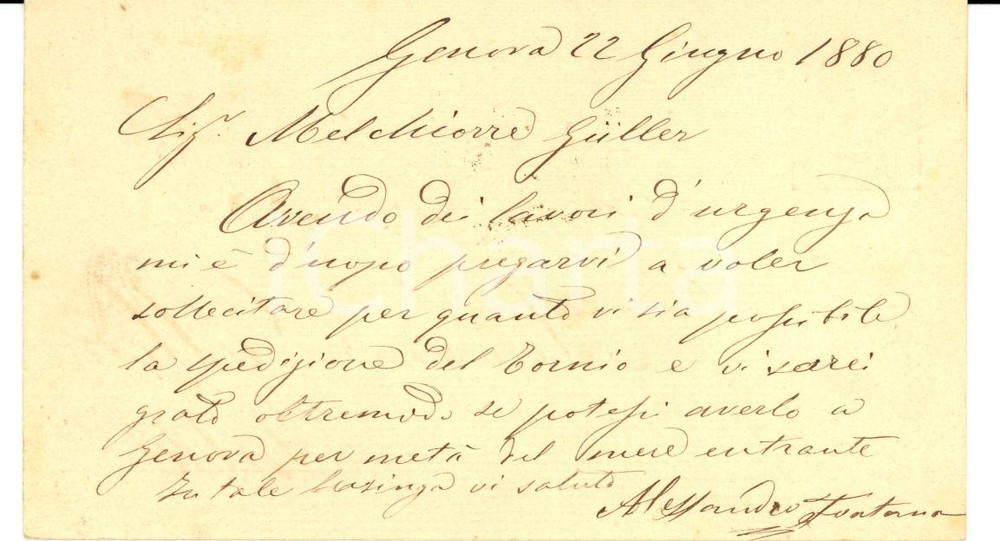 Genova 22 Giugno 1880
Sigr. Melchiorre Güller
Avendo dei lavori d'urgenza
mi è d'uopo pregarvi a voler
sollecitare per quanto vi sia possibile
la spedizione del Tornio e vi sarei
grato oltremodo se potessi averlo a
Genova per metà del mese entrante
In tale lusinga vi saluto
Alessandro Fontana
iCharta